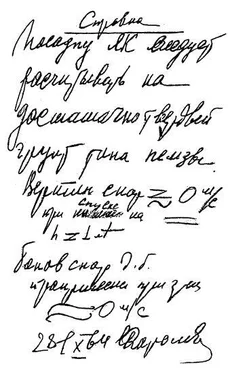 Справка
Посадку ЛК следует
расчитывать на
достаточно твердый
грунт типа пемзы.
Верти скор ≈ 0 м/с
при спуске на
h ≈ 1 м
Боков скор д.б.
≈ 0 м/с
28/X-64 Королев